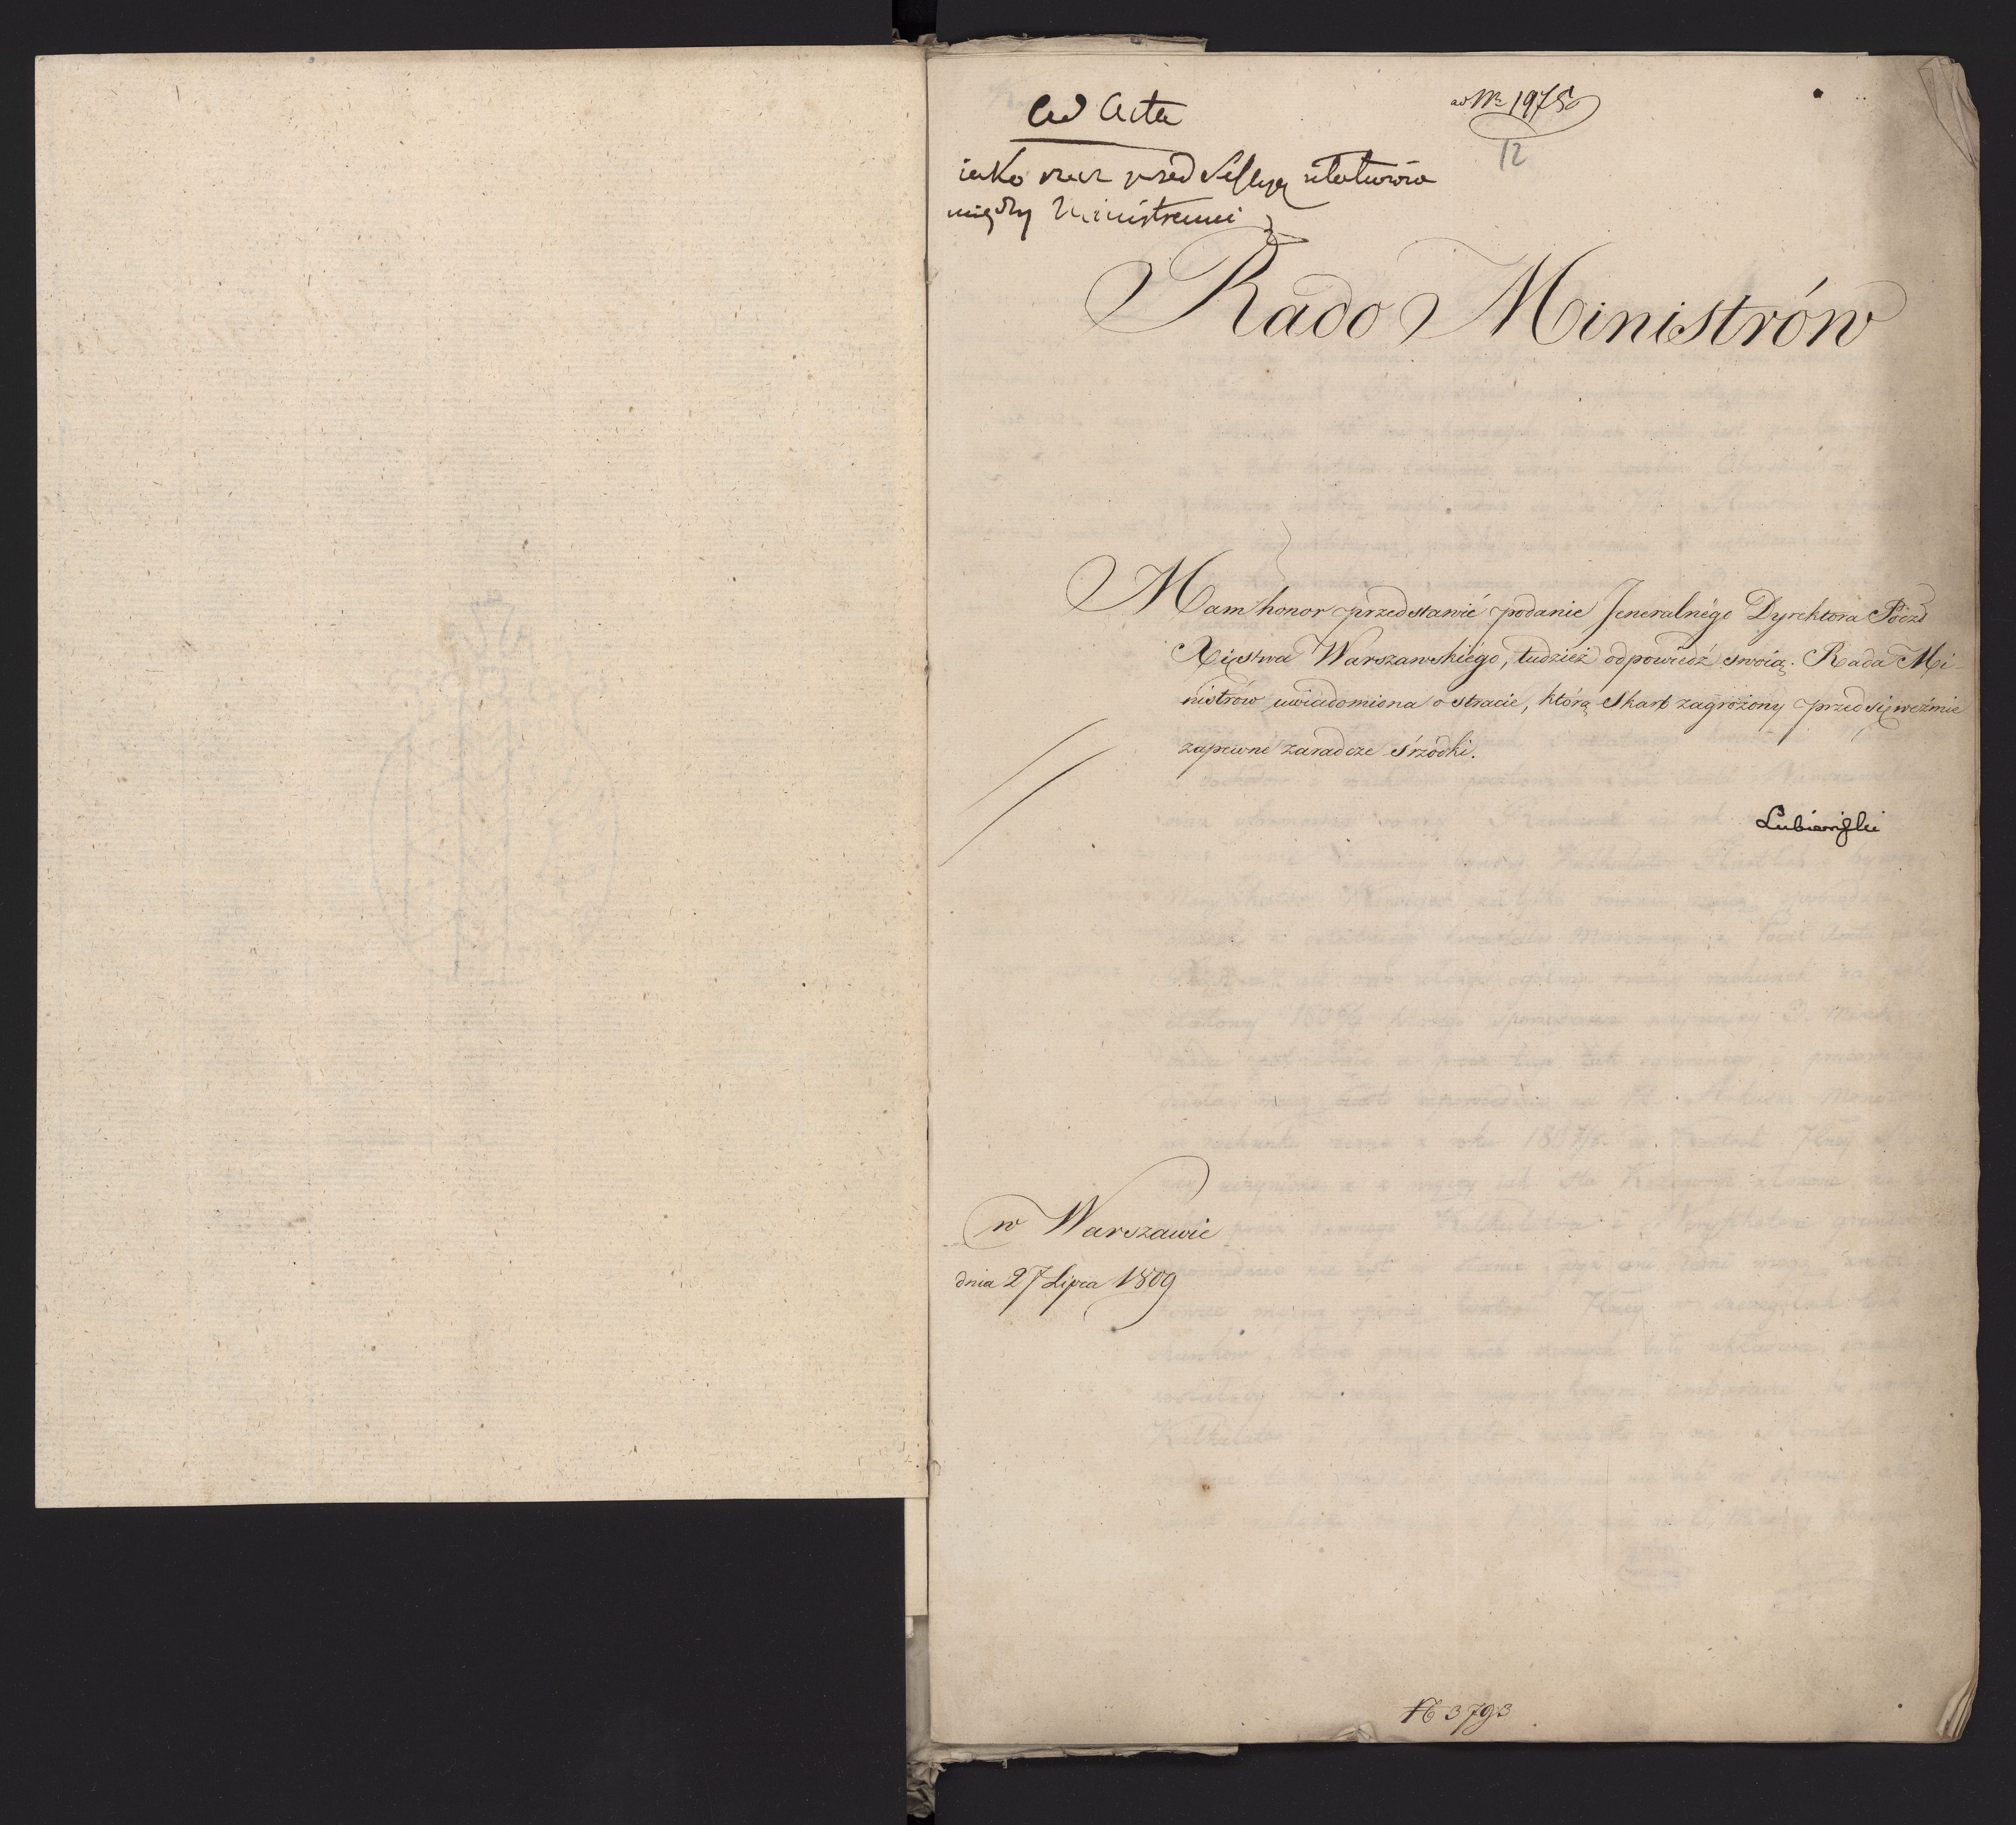 ad Acta
ad Nr 1975
12
iako rzecz przed Sessyą ułatwiona
między Ministrami
Rado Ministrów
Mam honor przedstawić podanie Jeneralnégo Dyrektora Poczd
Xięstwa Warszawskiégo, tudzież odpowiedź swoią. Rada Mi-
nistrów uwiadomiona o stracie, którą Skarb zagrożony przedsięweźmie
zapewne zaradcze śrzodki.
Lubieński
w Warszawie
dnia 27 Lipca 1809
No 3793